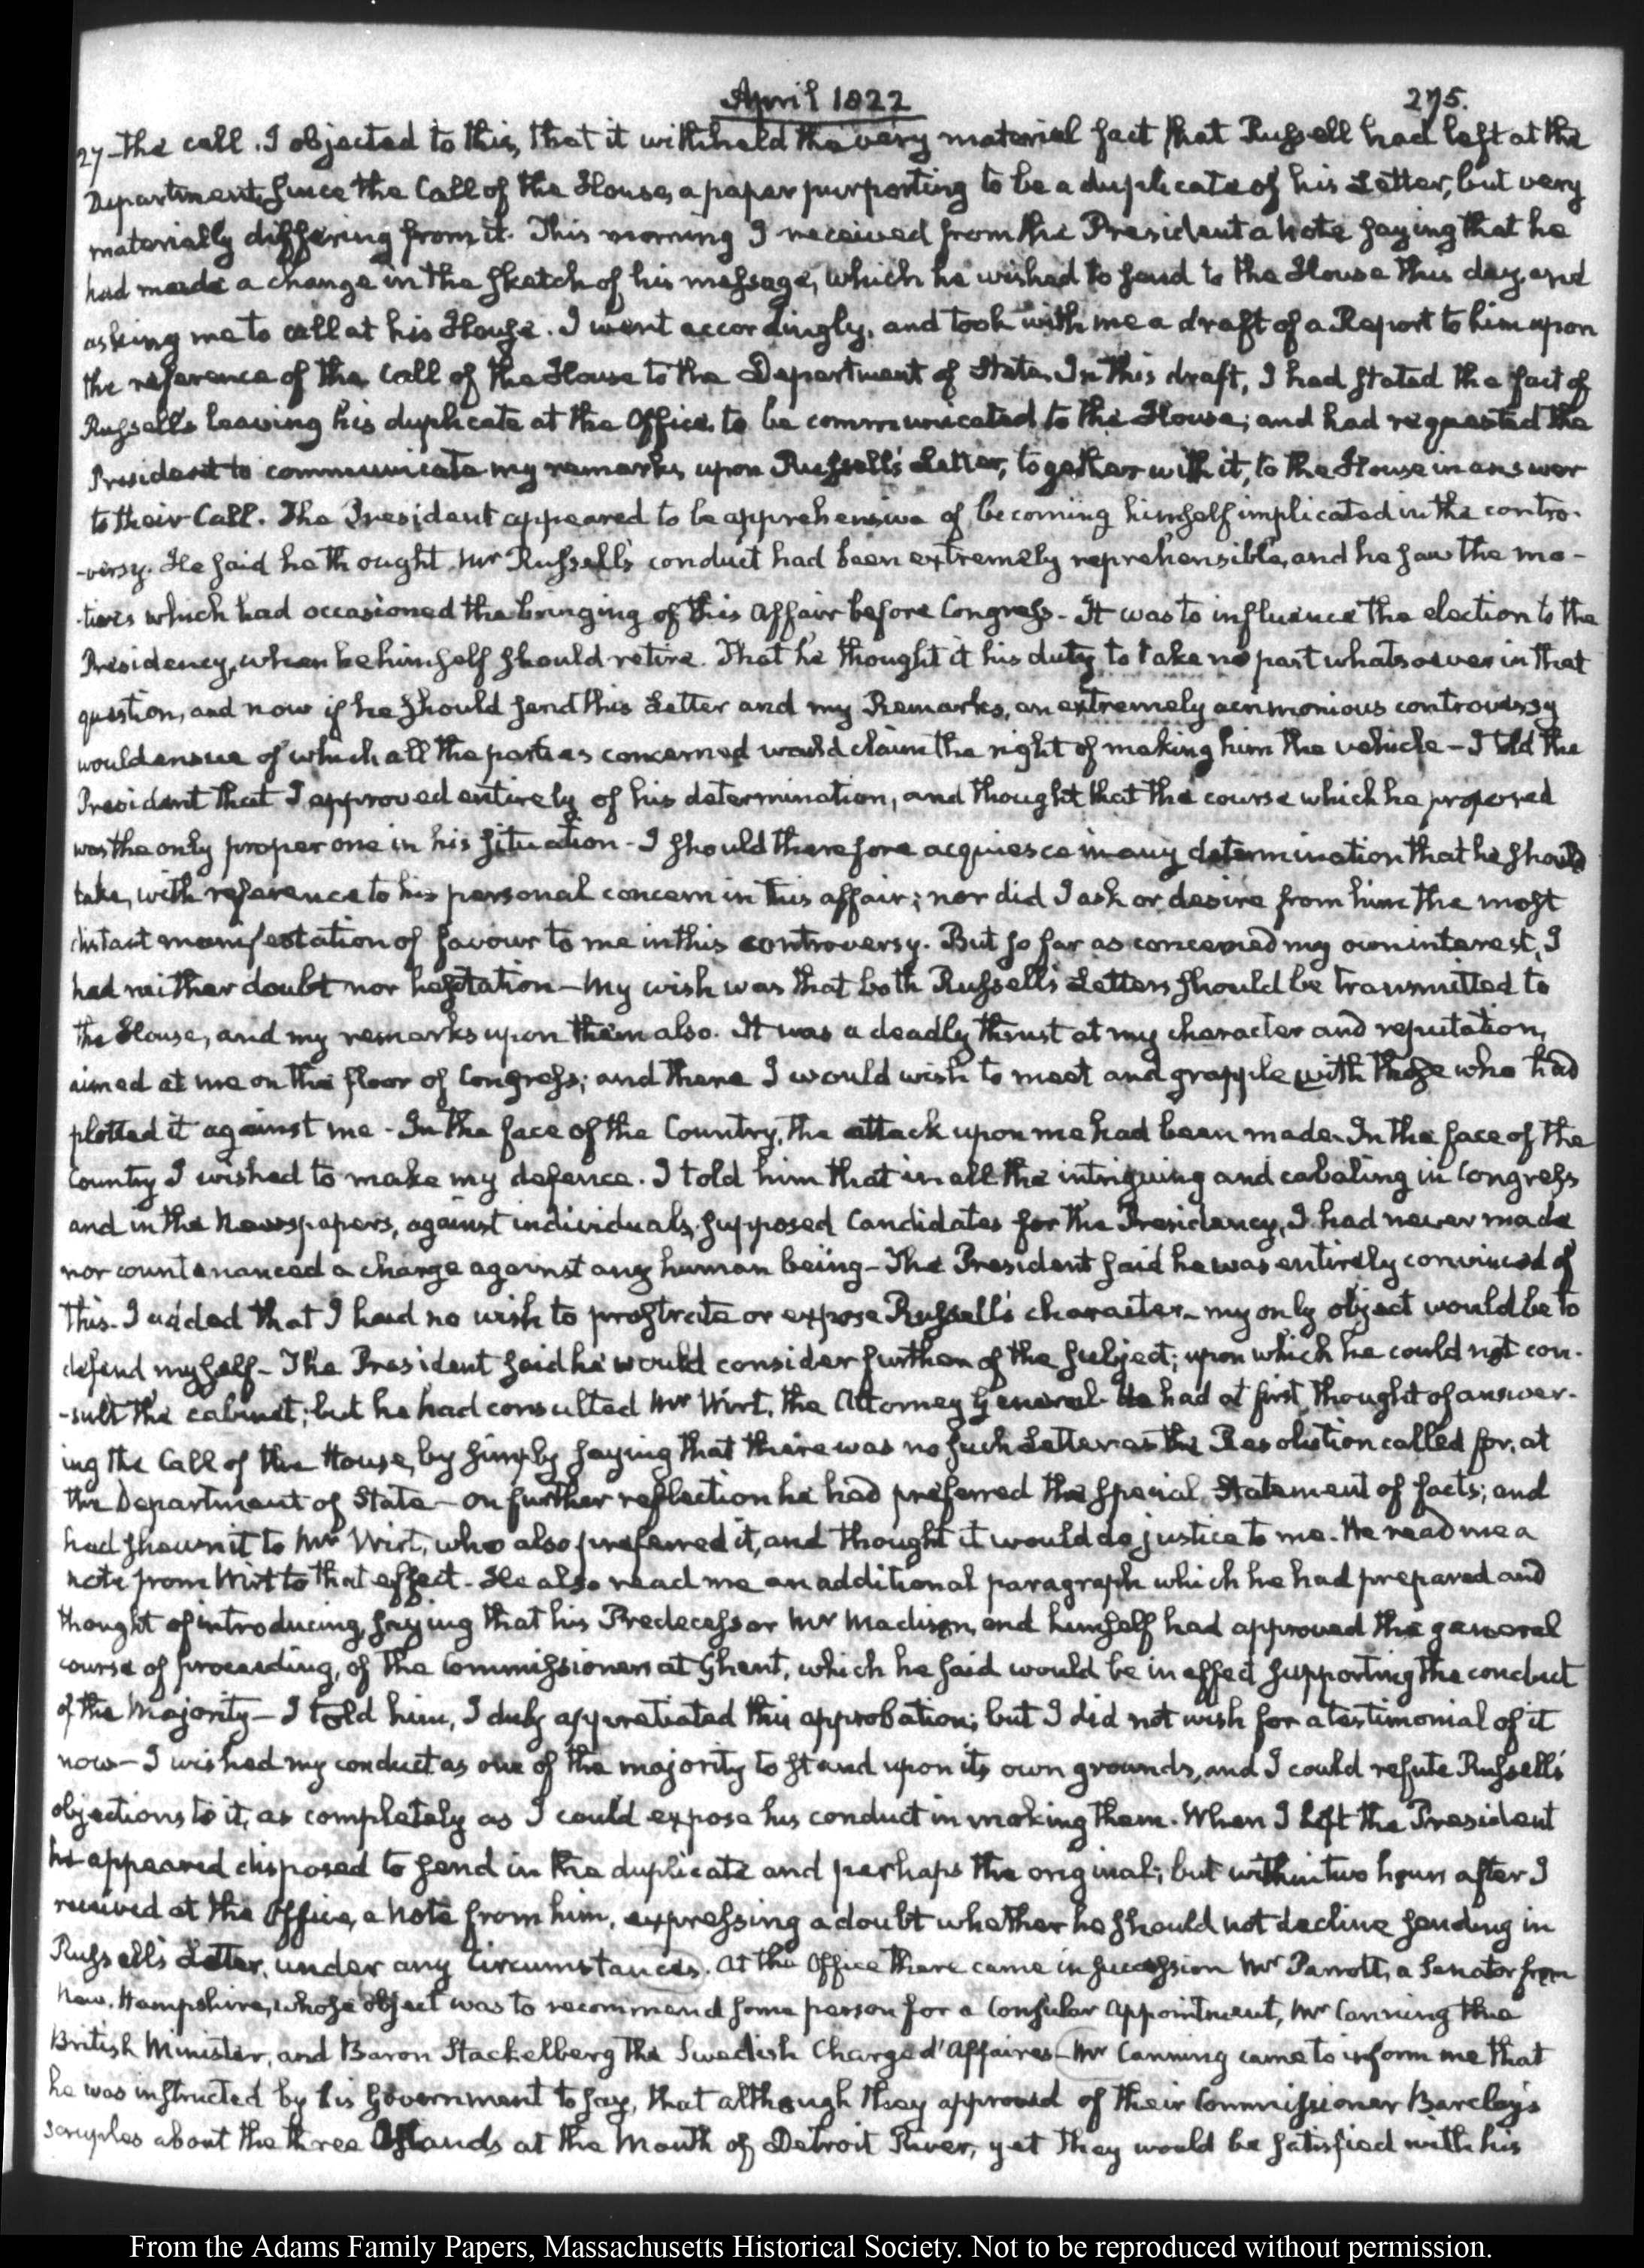 April 1822
275.
27 - the call. I objected to this, that it withheld the very material fact that Russell had left at the
Department, since the Call of the House, a paper purporting to be a duplicate of his Letter, but very
materially differing from it. This morning I received from the President a Note saying that he
had made a change in the sketch of his message, which he wished to send to the House this day, and
asking me to call at his House. I went accordingly, and took with me a draft of a Report to him upon
the reference of the Call of the House to the Department of State. In this draft, I had stated the fact of
Russell's leaving his duplicate at the Office, to be communicated to the House; and had requested the
President to communicate my remarks upon Russell's Letter, together with it, to the House in answer
to their Call. The President appeared to be apprehensive of becoming himself implicated in the contro-
-versy. He said he thought Mr Russell's conduct had been extremely reprehensible, and he saw the mo-
-tives which had occasioned the bringing of this Affair before Congress. It was to influence the election to the
Presidency, when he himself should retire. That he thought it his duty to take no part whatsoever in that
question, and now if he should send this Letter and my Remarks, an extremely acrimonious controversy
would ensue of which all the parties concerned would claim the right of making him the vehicle - I told the
President that I approved entirely of his determination, and thought that the course which he proposed
was the only proper one in his situation - I should therefore acquiesce in any determination that he should
take, with reference to his personal concern in this affair; nor did I ask or desire from him the most
distant manifestation of favour to me in this controversy. But so far as concerned my own interest, I
had neither doubt nor hesitation - My wish was that both Russell's Letters should be transmitted to
the House, and my remarks upon them also. It was a deadly thrust at my character and reputation,
aimed at me on the floor of Congress; and there I would wish to meet and grapple with those who had
plotted it against me - In the face of the Country, the attack upon me had been made. In the face of the
Country I wished to make my defence. I told him that in all the intriguing and cabaling in Congress
and in the Newspapers, against individuals, supposed Candidates for the Presidency, I had never made
nor countenanced a charge against any human being - The President said he was entirely convinced of
this. I added that I had no wish to prostrate or expose Russell's character - my only object would be to
defend myself - The President said he would consider further of the subject; upon which he could not con-
-sult the cabinet; but he had consulted Mr Wirt, the Attorney General - He had at first thought of answer-
ing the Call of the House, by simply saying that there was no such Letter as the Resolution called for, at
the Department of State - on further reflection he had preferred the special statement of facts; and
had shewn it to Mr Wirt, who also preferred it, and thought it would do justice to me. He read me a
note from Wirt to that effect. He also read me an additional paragraph which he had prepared and
thought of introducing, saying that his Predecessor Mr Madison, and himself had approved the general
course of proceeding, of the Commissioners at Ghent, which he said would be in effect supporting the conduct
of the Majority - I told him, I duly appretiated this approbation; but I did not wish for a testimonial of it
now - I wished my conduct as one of the majority to stand upon its own grounds, and I could refute Russell's
objections to it, as completely as I could expose his conduct in making them. When I left the President
he appeared disposed to send in the duplicate and perhaps the original; but within two hours after I
received at the Office, a Note from him, expressing a doubt whether he should not decline sending in
Russell's Letter, under any circumstances. At the Office there came in succession Mr Parrott, a Senator from
New-Hampshire, whose object was to recommend some person for a Consular appointment, Mr Canning the
British Minister, and Baron Stackelberg the Swedish Chargé d'Affaires - Mr Canning came to inform me that
he was instructed by his Government to say, that although they approved of their Commissioner Barclay's
scruples about the three Islands at the Mouth of Detroit River, yet they would be satisfied with his
From the Adams Family Papers, Massachusetts Historical Society. Not to be reproduced without permission.